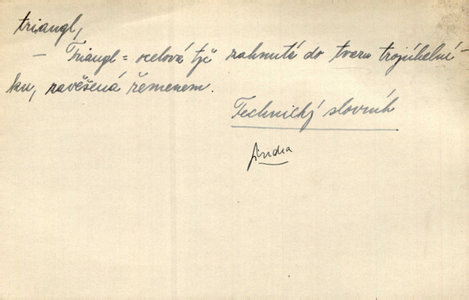 triangl,
— Triangl = ocelová tyč zahnutá do tvaru trojúhelní-
ku, zavěšená řemenem.
Technický slovník